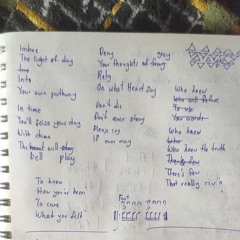 Imbue
The light of day
Into
Your own pathway
In time
You'll seize your day
With chime
The bell will play
To know
How you're born
To care
What you felt
Deny
Your thoughts
Rely
On what Heart Say
Don't die
Don't ever stay
Please cry
If ever may
Who knew
Who knew
Who knew the truth
There's few
That really